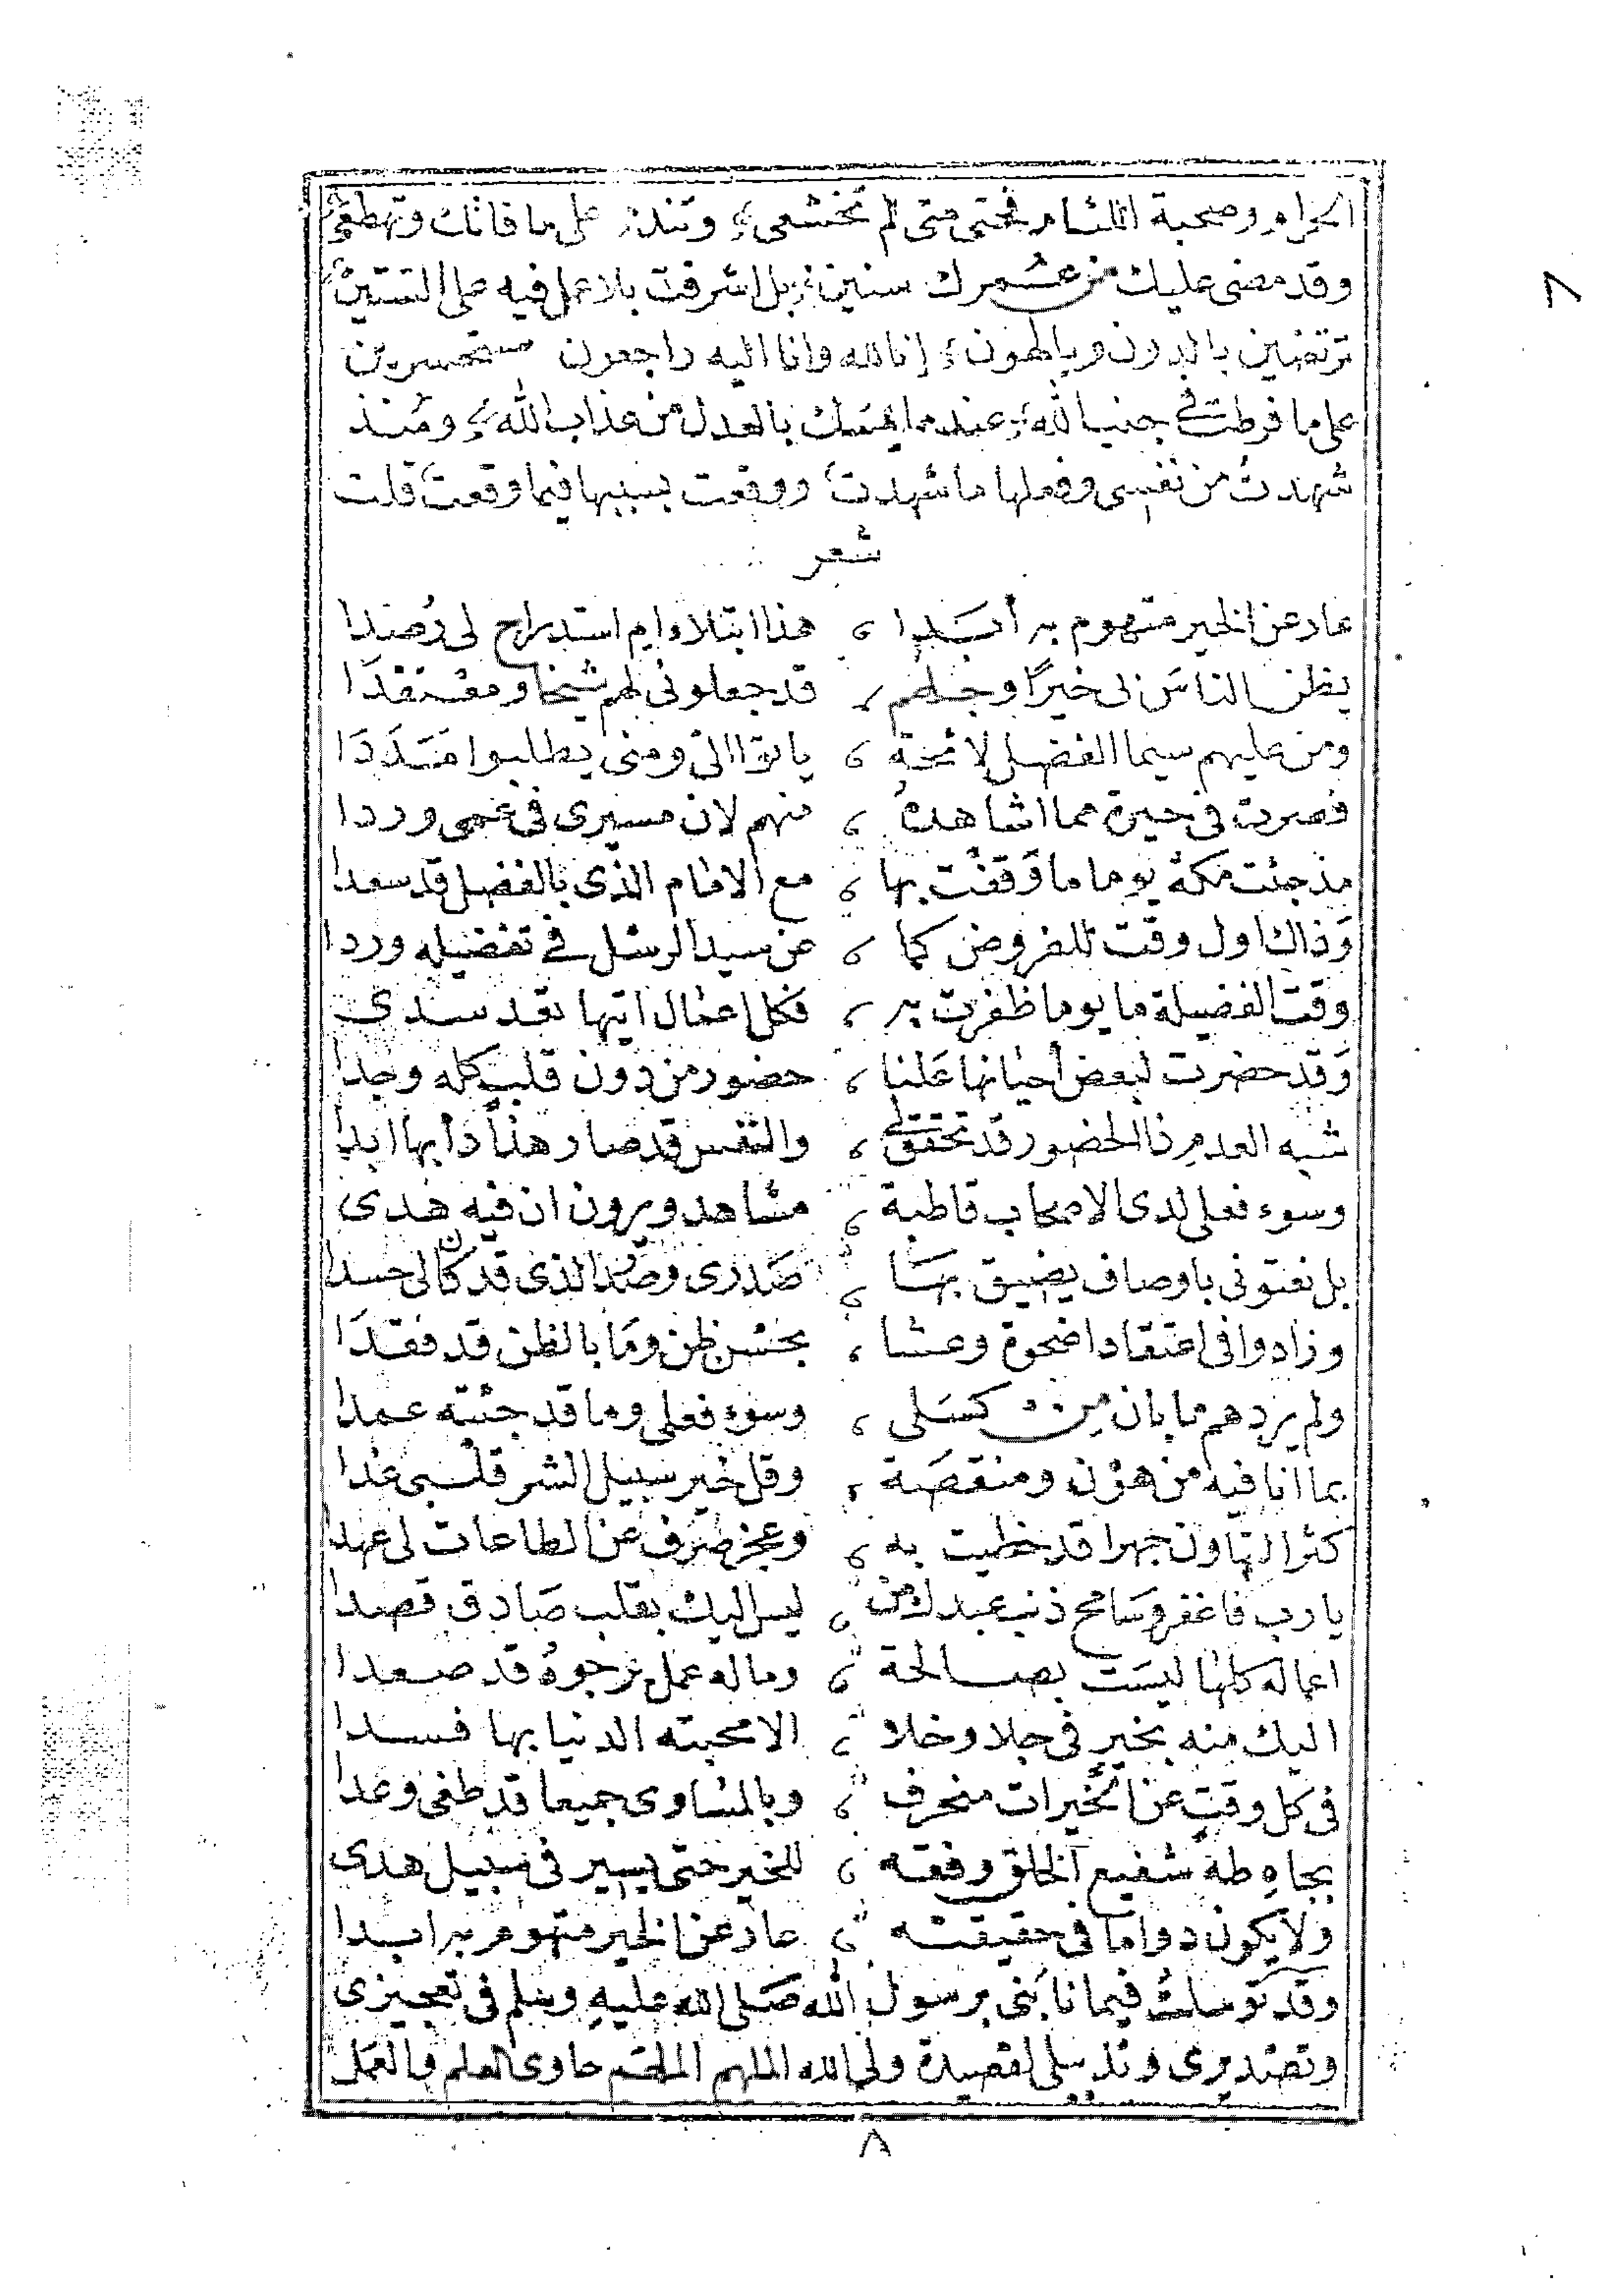 الحرام وصحبة اللئام فحتى متى لم تخشعى وتندم على ما فاتك وتهطعى
وقد مضى عليك من عمرك سنين بل اشرفت بلا عمل فيه على الستين
ترتضين بالدون وبالهون انا لله وانا اليه راجعون ستحسرين
على ما فرطت فى جنب الله عندما يمسك بالعدل من عذاب الله ومنذ
شهدت من نفسى وفعلها ما شهدت ووقعت بسببها فيما وقعت قلت
شعر
عار عن الخير متهوم به أبدا ، هذا ابتلاء ام استدراج لى رصدا
يظن الناس بى خيرا وجلهم ، قد جعلونى لهم شيخا ومعتقدا
ومن عليهم سيما الفضل لائحة ، ياتوا الى ومنى يطلبوا مددا
فصرت فى حيرة مما اشاهده ، منهم لان مسيرى فى عمى وردا
مذ جئت مكة يوما ما وقفت بها ، مع الامام الذى بالفضل قد سعدا
وذاك اول وقت للفروض كما ، عن سيد الرسل فى تفضيله وردا
وقت الفضيلة ما يوما ظفرت به ، فكل اعمال اتيها تعد سدى
وقد حضرت لبعض أحيانها علنا ، حضور من دون قلب كله وجدا
شبه العدم ذا الحضور قد تحقق لى ، والنفس قد صار هذا دأبها ابدا
وسوء فعلى لدى الاصحاب قاطبة ، مشاهد ويرون ان فيه هدى
بل نعتونى باوصاف يضيق بها ، صدرى وصد الذى قد كان لى حسدا
وزادوا فى اعتقادا ضحوة وعشا ، بحسن ظن وما بالظن قد فقدا
ولم يردهم ما بان من كسلى ، وسوء فعلى وما قد جئته عمدا
بما انا فيه من هون ومنقصة ، وقل خير سبيل الشر قلبى غدا
كثر التهاون جهرا قد خطيت به ، وعجز صرف عن الطاعات لى عهدا
يا رب فاغفر وسامح ذنب عبدك من ، ليس اليك بقلب صادق قصدا
اعماله كلها ليست بصالحة ، وماله عمل نرجوه قد صعدا
اليك منه بخير فى جلا وخلا ، الا محبته الدنيا بها فسدا
فى كل وقت عن الخيرات منحرف ، وبالمساوى جميعا قد طغى وعدا
بجاه طه شفيع الخلق وفقه ، للخير حتى يسير فى سبيل هدى
ولا يكون دواما فى حقيقته ، عار عن الخير متهوم به ابدا
وقد توسلت فيما نابنى برسول الله صلى الله عليه وسلم فى تعجيزى
وتصديرى وتذييلى لقصيدة ولى الله الملهم حاوى العلم والعمل
٨
٨